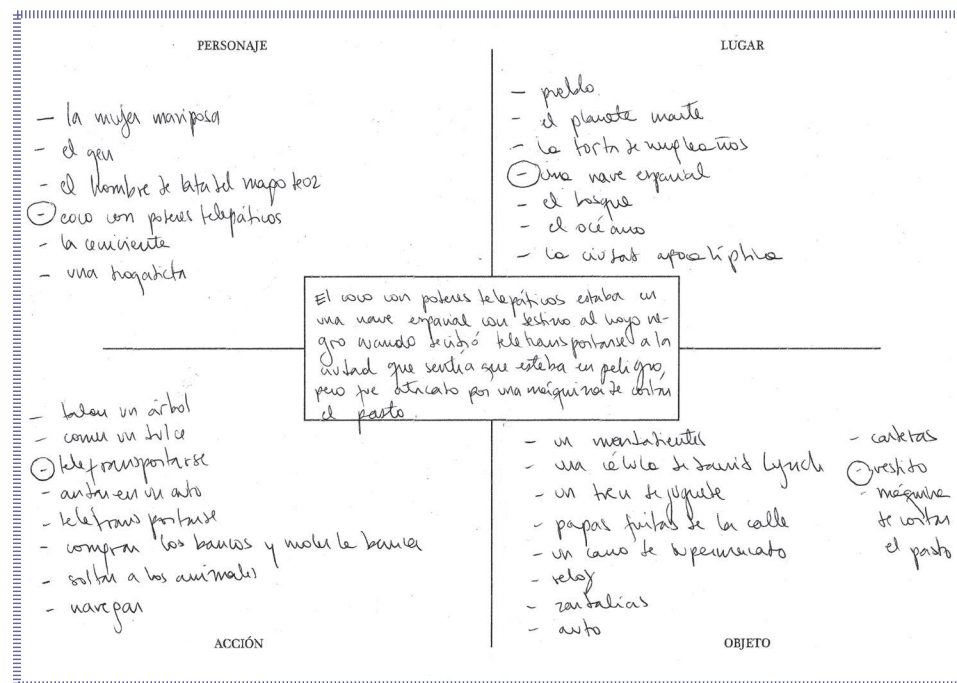 PERSONAJE
- la mujer mariposa
- el gen
- el hombre de lata del mago de oz
- coco con poderes telepáticos
- la cenicienta
- una drogadicta
LUGAR
- pueblo
- el planeta marte
- la torta de cumpleaños
- una nave espacial
- el bosque
- el océano
- la ciudad apocalíptica
El coco con poderes telepáticos estaba en
una nave espacial con destino al hoyo ne-
gro cuando decidió teletransportarse a la
ciudad que sentía que estaba en peligro,
pero fue atacado por una máquina de cortar
el pasto.
- talar un árbol
- comer un dulce
- teletransportarse
- andar en un auto
- teletransportarse
- comprar los bancos y
- soltar a los animales
- navegar
ACCIÓN
- un mondadientes
- una célula de David Lynch
- un tren de juguete
- papas fritas de la calle
- un carro de supermercado
- reloj
- sandalias
- auto
- carteras
- vestido
- máquina
de cortar
el pasto
OBJETO